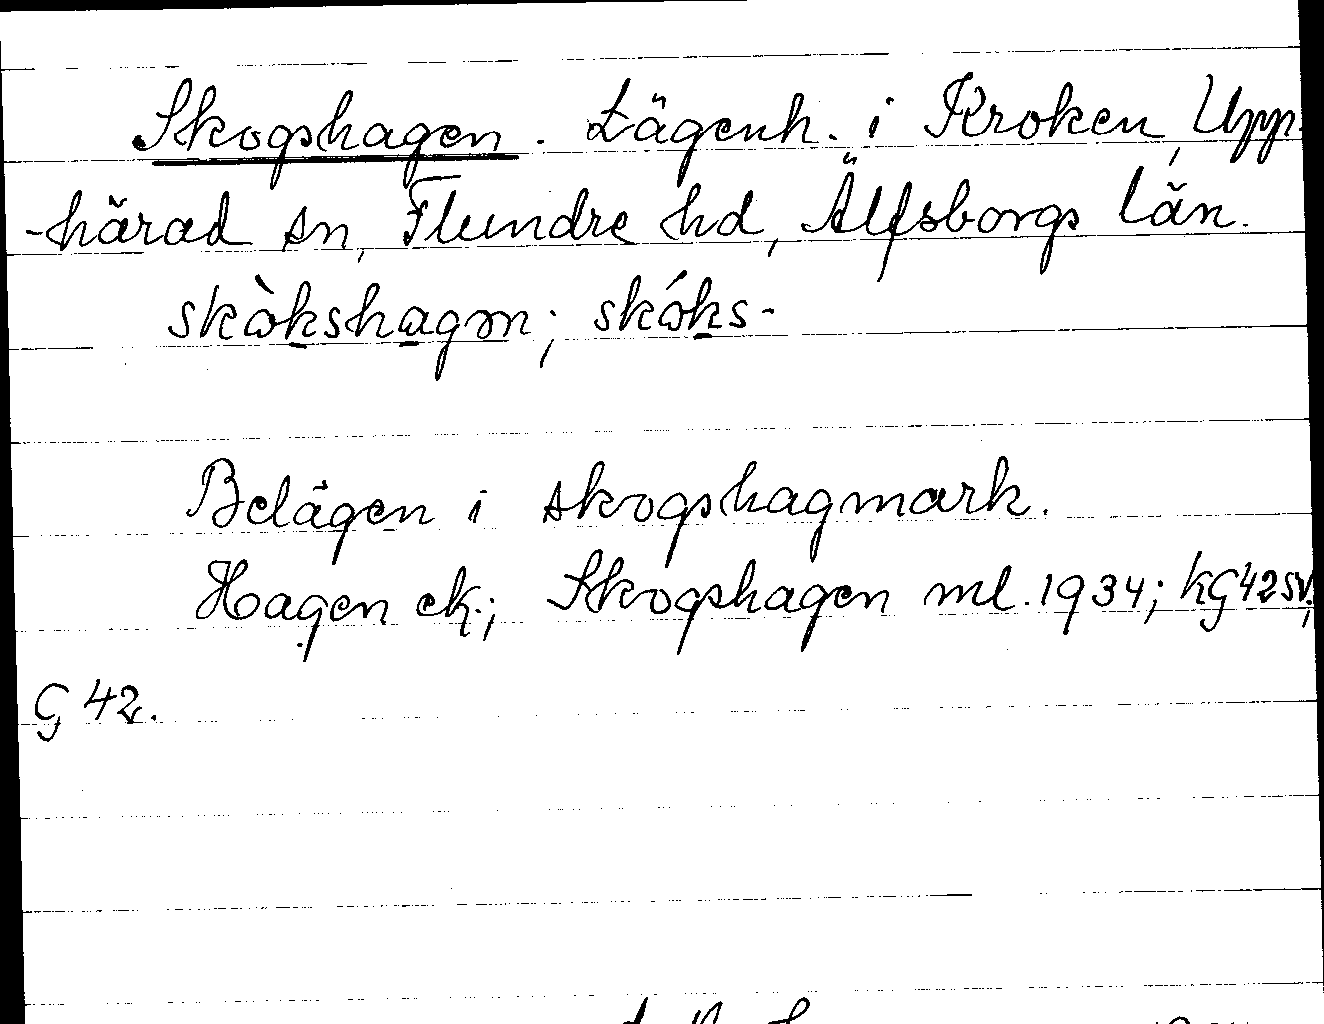 Skogshagen. Lägenh. i Kroken, Upp-
-härad sn, Flundre hd, Älfsborgs län.
skòkshagen; skóks-
Belägen i skogshagmark.
Hagen ek.; Skogshagen ml. 1934; KG 42 SV;
G 42.